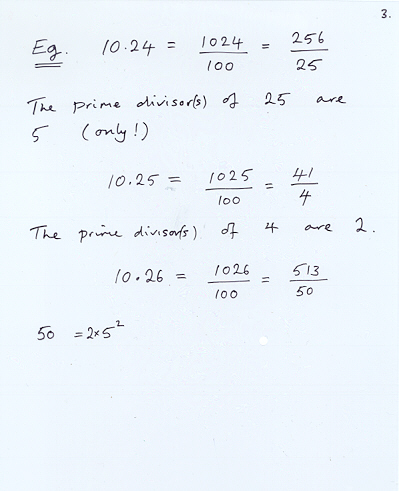 3.
Eg. 10.24 = 1024/100 = 256/25
The prime divisor(s) of 25 are
5 (only!)
10.25 = 1025/100 = 41/4
The prime divisor(s) of 4 are 2.
10.26 = 1026/100 = 513/50
50 = 2×5²